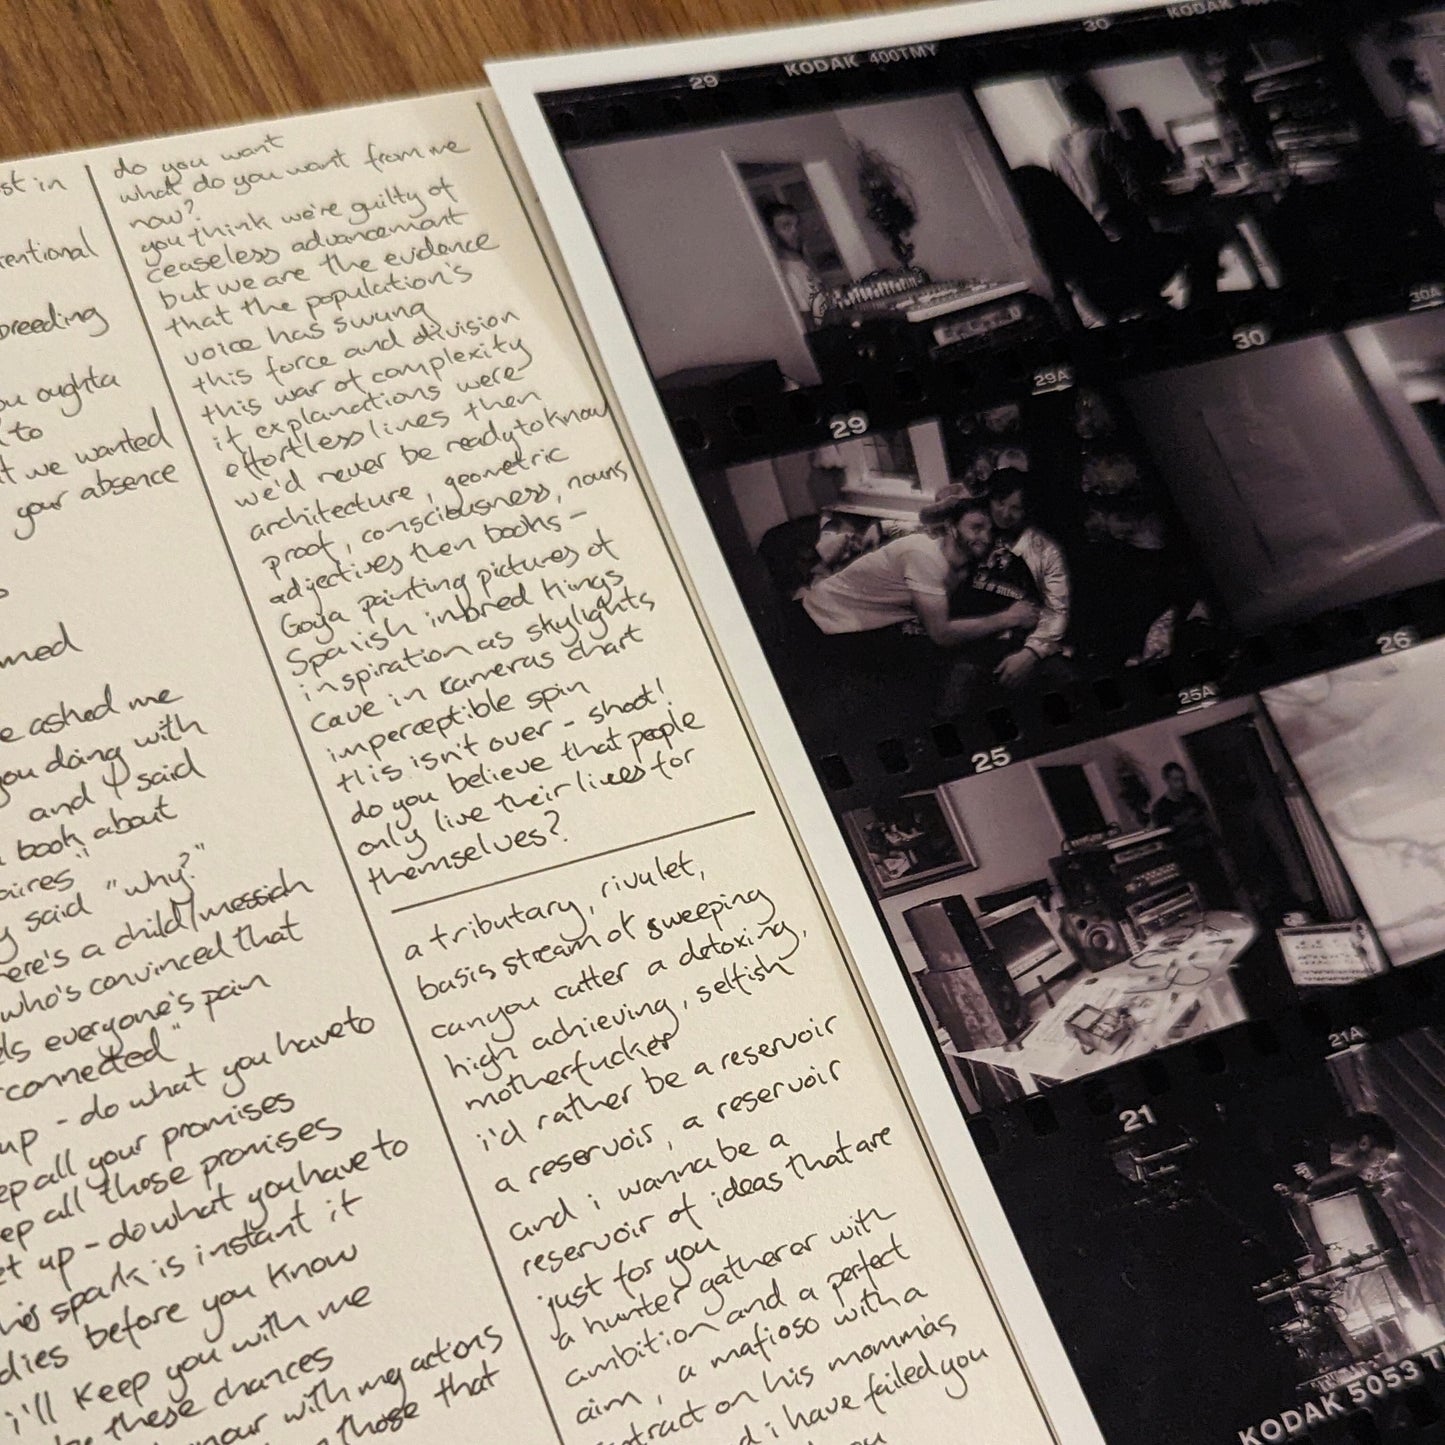 st in
rentional
breeding
ou oughta
to
t we wanted
your absence
med
e asked me
you doing with
and i said
book about
aires"
y said "why?"
ere's a child/messiah
who's convinced that
ls everyone's pain
connected"
up - do what you have to
ep all your promises
ep all those promises
et up - do what you have to
spark is instant it
dies before you know
i'll keep you with me
these chances
our with my actions
those that
do you want
what do you want from me
now?
you think we're guilty of
ceaseless advancement
but we are the evidence
that the population's
voice has swung
this force and division
this war of complexity
if explanations were
effortless lines then
we'd never be ready to know
architecture, geometric
proof, consciousness, nouns,
adjectives then books -
Goya painting pictures of
Spanish inbred kings
inspiration as skylights
cave in cameras chart
imperceptible spin
this isn't over - shoot!
do you believe that people
only live their lives for
themselves?
a tributary, rivulet,
basis stream of sweeping
can you cutter a detoxing,
high achieving, selfish
motherfucker
i'd rather be a reservoir
a reservoir, a reservoir
and i wanna be a
reservoir of ideas that are
just for you
a hunter gatherer with
ambition and a perfect
aim, a mafioso with a
ntract on his momma's
d i have failed you
ou
29 KODAK 400TMY 30 KODAK
29 29A 30 30A
25 25A 26
21 21A
KODAK 5053 T